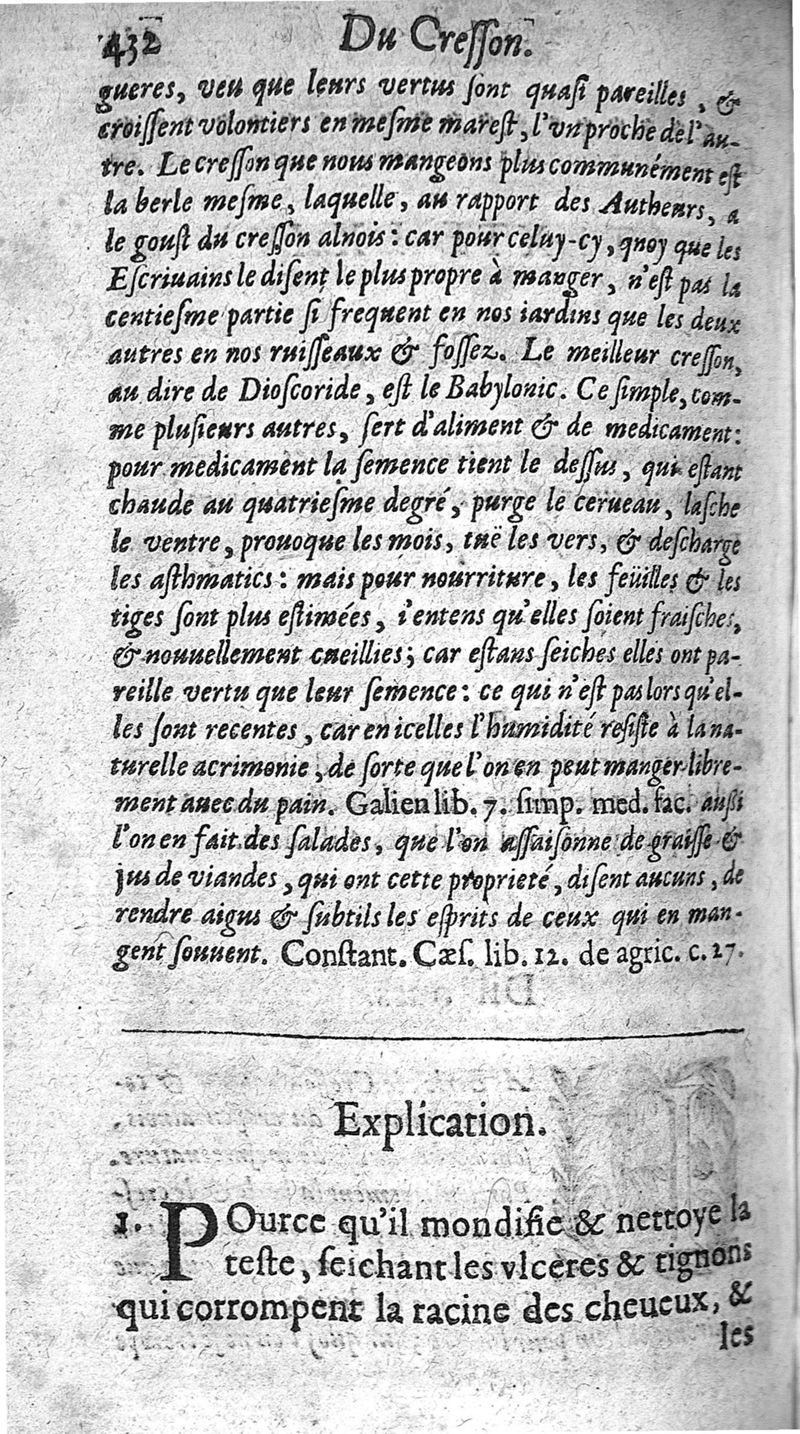 432 Du Creſſon.
gueres, veu que leurs vertus ſont quaſi pareilles, &
croiſſent volontiers en meſme mareſt, l'vn proche de l'au-
tre. Le creſſon que nous mangeons plus communément eſt
la berle meſme, laquelle, au rapport des Autheurs, a
le gouſt du creſſon alnois: car pour celuy-cy, quoy que les
Eſcriuains le diſent le plus propre à manger, n'eſt pas la
centieſme partie ſi frequent en nos iardins que les deux
autres en nos ruiſſeaux & foſſez. Le meilleur creſſon,
au dire de Dioſcoride, eſt le Babylonic. Ce ſimple, com-
me pluſieurs autres, ſert d'aliment & de medicament:
pour medicament la ſemence tient le deſſus, qui eſtant
chaude au quatrieſme degré, purge le cerueau, laſche
le ventre, prouoque les mois, tuë les vers, & deſcharge
les aſthmatics: mais pour nourriture, les feüilles & les
tiges ſont plus eſtimées, i'entens qu'elles ſoient fraiſches,
& nouuellement cueillies; car eſtans ſeiches elles ont pa-
reille vertu que leur ſemence: ce qui n'eſt pas lors qu'el-
les ſont recentes, car en icelles l'humidité reſiſte à la na-
turelle acrimonie, de ſorte que l'on en peut manger libre-
ment auec du pain. Galien lib. 7. ſimp. med. fac. auſſi
l'on en fait des ſalades, que l'on aſſaiſonne de graiſſe &
jus de viandes, qui ont cette proprieté, diſent aucuns, de
rendre aigus & ſubtils les eſprits de ceux qui en man-
gent ſouuent. Conſtant. Cæſ. lib. 12. de agric. c. 27.
Explication.
1. POurce qu'il mondifie & nettoye la
teſte, ſeichant les vlceres & tignons
qui corrompent la racine des cheueux, &
les